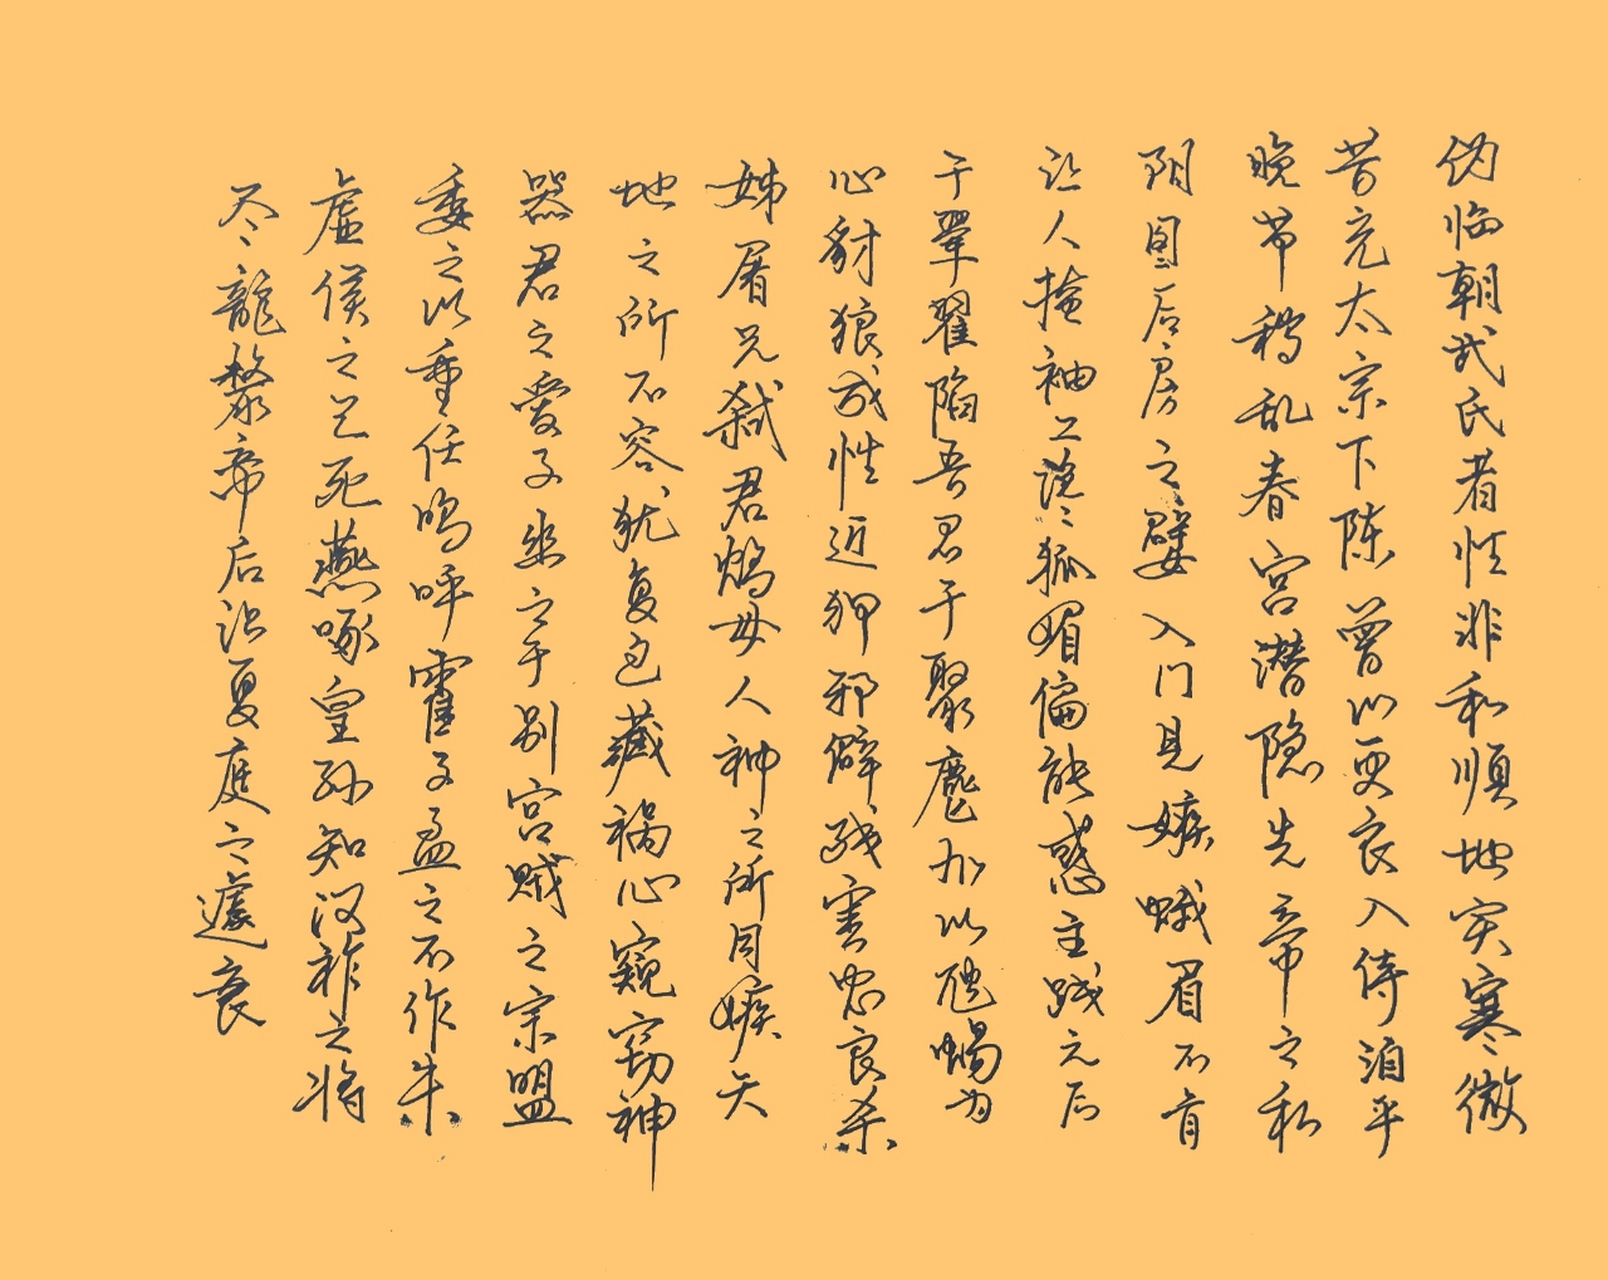 伪临朝武氏者性非和顺地实寒微
昔充太宗下陈曾以更衣入侍洎乎
晚节秽乱春宫潜隐先帝之私
阴图后房之嬖入门见嫉蛾眉不肯
让人掩袖工谗狐媚偏能惑主践元后
于翚翟陷吾君于聚麀加以虺蜴为
心豺狼成性近狎邪僻残害忠良杀
姊屠兄弑君鸩母人神之所同嫉天
地之所不容犹复包藏祸心窥窃神
器君之爱子幽之于别宫贼之宗盟
委之以重任呜呼霍子孟之不作朱
虚侯之已死燕啄皇孙知汉祚之将
尽龍漦帝后识夏庭之遽衰